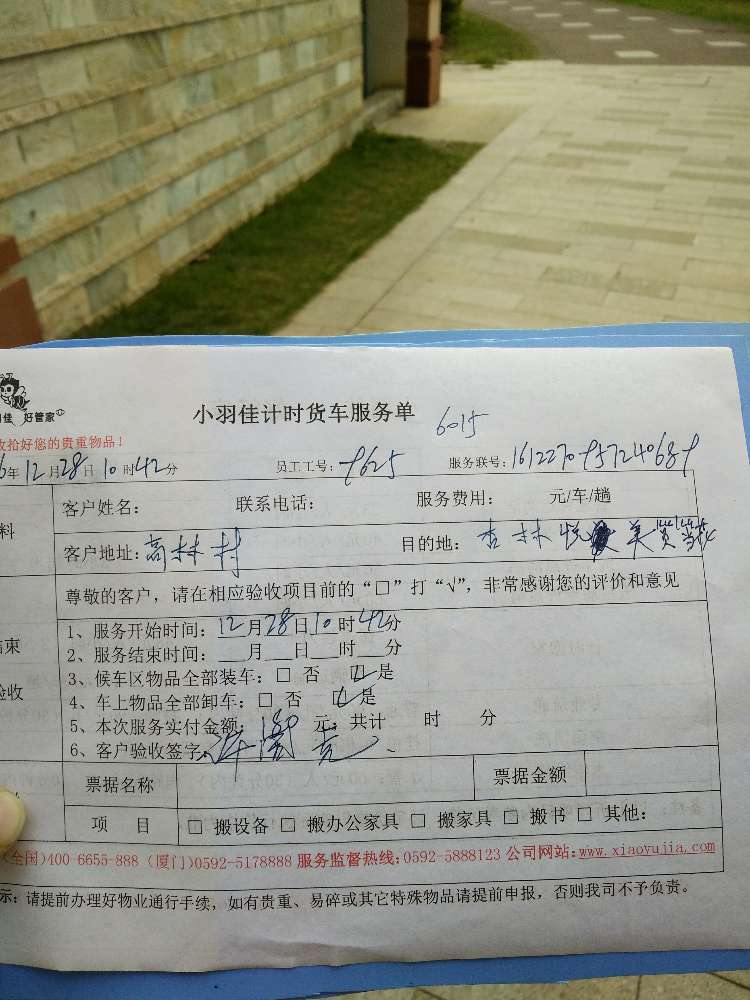 小羽佳计时货车服务单 6015
佳 好管家
收拾好您的贵重物品!
6年12月28日10时42分 员工工号: 9625 服务联号: 1612270957240689
客户姓名: 联系电话: 服务费用: 元/车/趟
料
客户地址: 高林村 目的地: 杏林悦 美
尊敬的客户,请在相应验收项目前的“□”打“√”,非常感谢您的评价和意见
1、服务开始时间: 12月28日10时42分
束
2、服务结束时间: ___月___日___时___分
3、候车区物品全部装车: □ 否 ☑ 是
验收
4、车上物品全部卸车: □ 否 ☑ 是
5、本次服务实付金额: 180 元; 共计 时 分
6、客户验收签字:
票据名称 票据金额
项 目 □ 搬设备 □ 搬办公家具 □ 搬家具 □ 搬书 □ 其他:
(全国)400-6655-888 (厦门)0592-5178888 服务监督热线:0592-5888123 公司网站:www.xiaoyujia.com
示:请提前办理好物业通行手续,如有贵重、易碎或其它特殊物品请提前申报,否则我司不予负责。